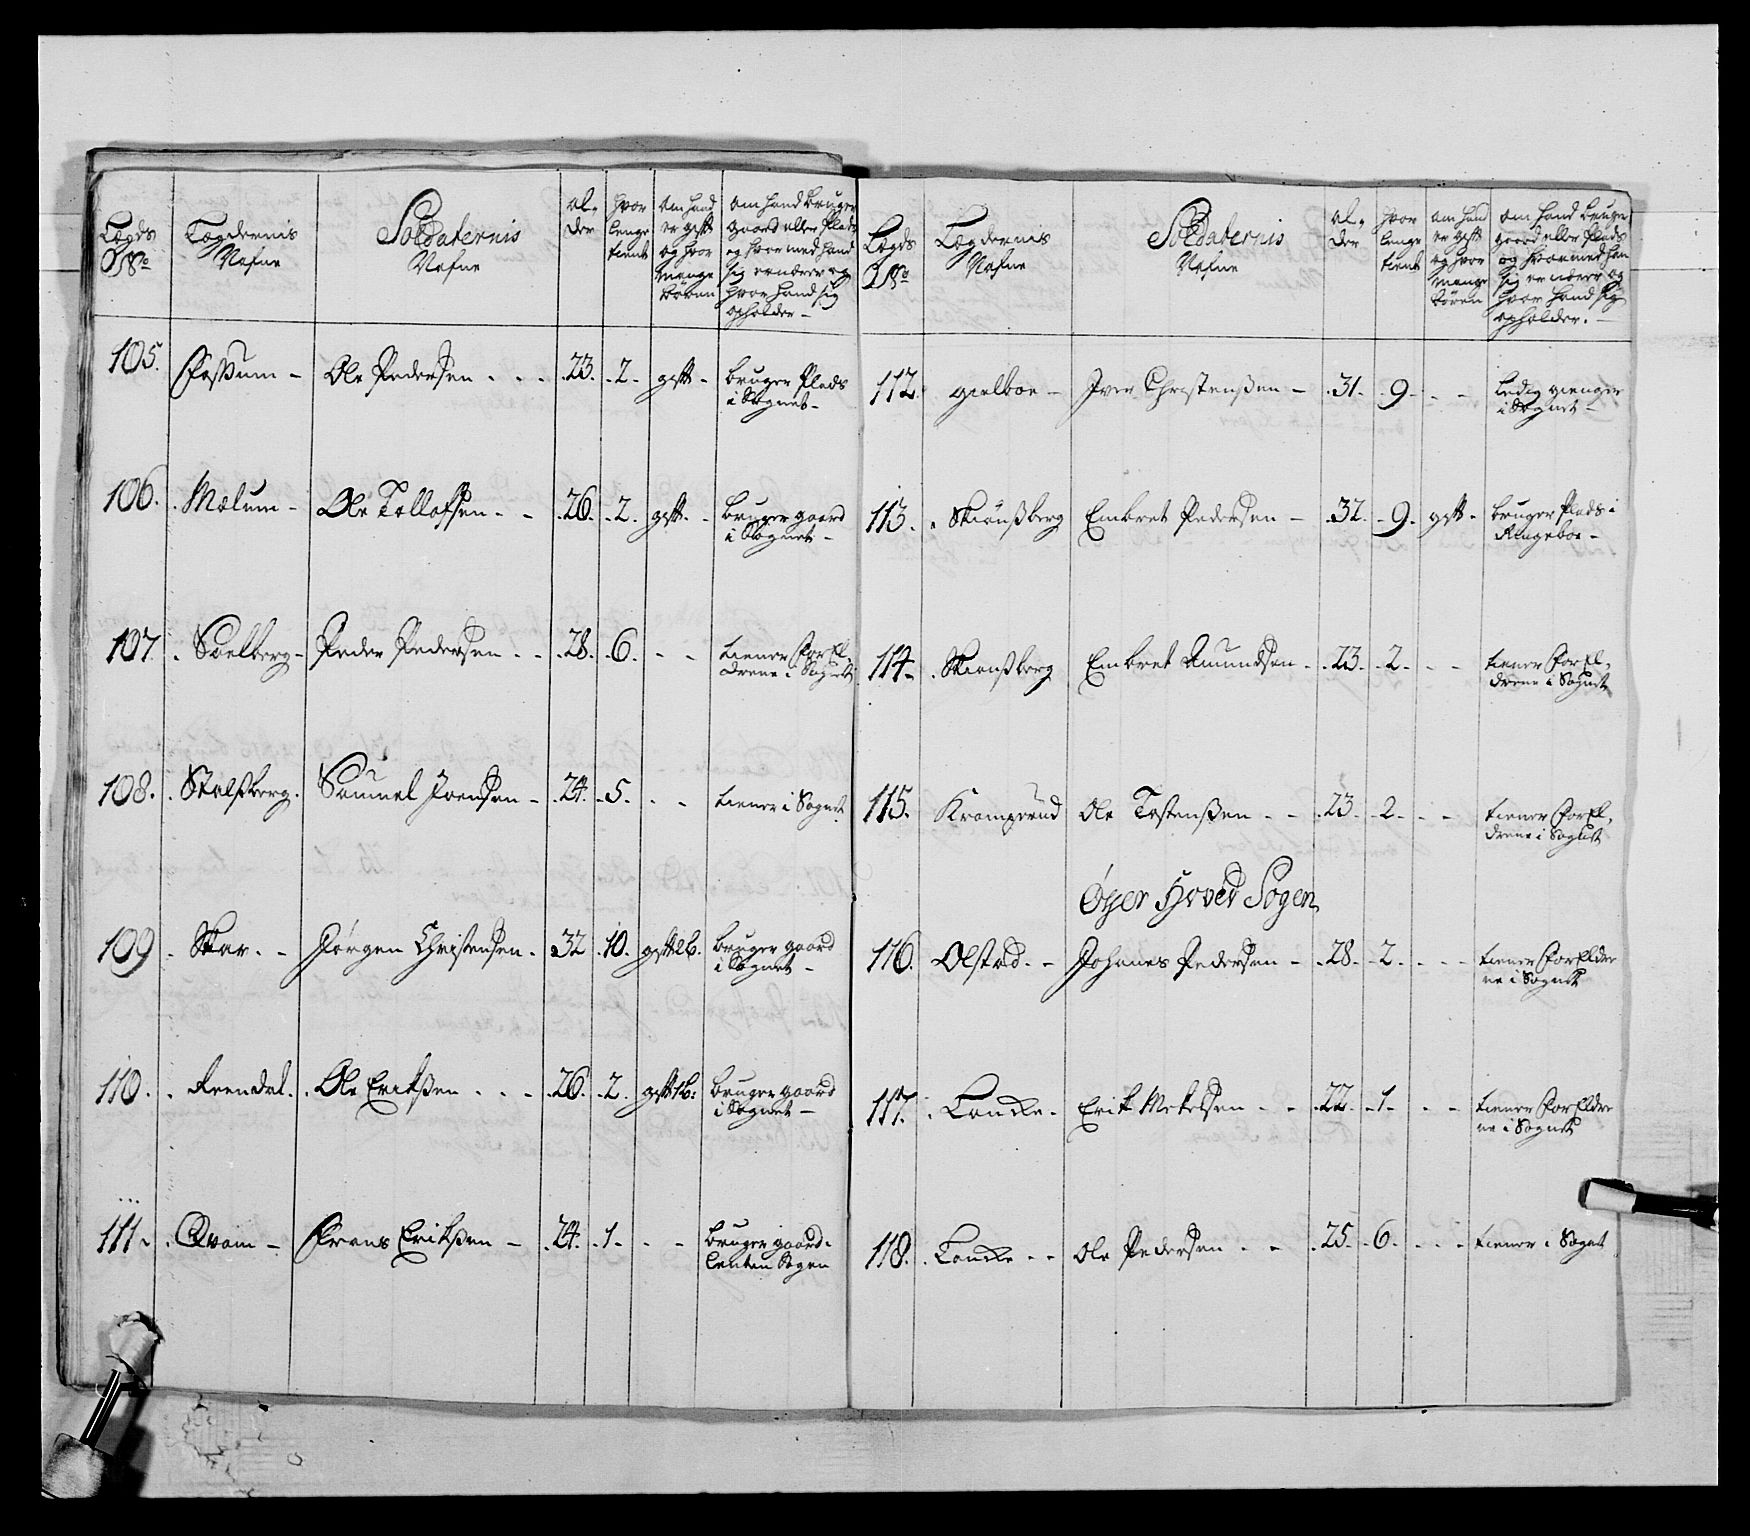 Lægds No
Lægdernis Nafne
Soldaternis Nafne
al-
der
hvor
lenge
tient
om hand
er gift
og hvor
mange
bören
om hand bruger
gaard eller Plads
og hvor med hand
sig ernærer og
hvor hand sig
opholder -
105. Fossum - Ole Pedersen . . . 23. 2. gift - bruger Plads
i Sognet -
106. Mælum - Ole Tollofsen - - 26. 2. gift - bruger gaard
i Sognet -
107. Solberg - Peder Pedersen - - 28. 6. - - tiener For El-
drene i Sognet
108. Stalsberg. Samuel Joensen - 24. 5. - - tiener i Sognet
109 Skar. - Jörgen Christensen. 32 10. gift 2b. bruger gaard
i Sognet -
110. Ole Erikßen . . . 26. 2. gift 1b: bruger gaard
i Sognet -
111. Qvam - Frans Erikßen - 24. 1. - - bruger gaard.
Sogen
Lægds
No
Lægdernis
Nafne
Soldaternis
Nafne
al-
der
hvor
lenge
tient
om hand
er gift
og hvor
mange
börn
om hand bruger
gaard eller Plads
og hvormed han
sig ernærer og
hvor hand sig
opholder. -
112. gielboe - Iver Christenßen - 31. 9 - - - ledig gienger
i Sognet -
113. Skiönßberg Embret Pedersen - 32. 9. gift - bruger Plads i
Ringeboe -
114. Skionßberg Embret Amundsen - 23. 2. - - tiener For El-
drene i Sognet
115. Kramprud Ole Tostenßen - - 23. 2. - - tiener For El-
drene i Sognet
Öyer Hoved Sogen
116. Olstad - - Johanes Pedersen - 28. 2. - - - tiener For Eldre
ne i Sognet
117. Lancke - Erik Mekelsen - - 22. 1. - - tiener For Eldre
ne i Sognet
118. Lancke - - Ole Pedersen - - 25. 6. - - tiener i Sognet